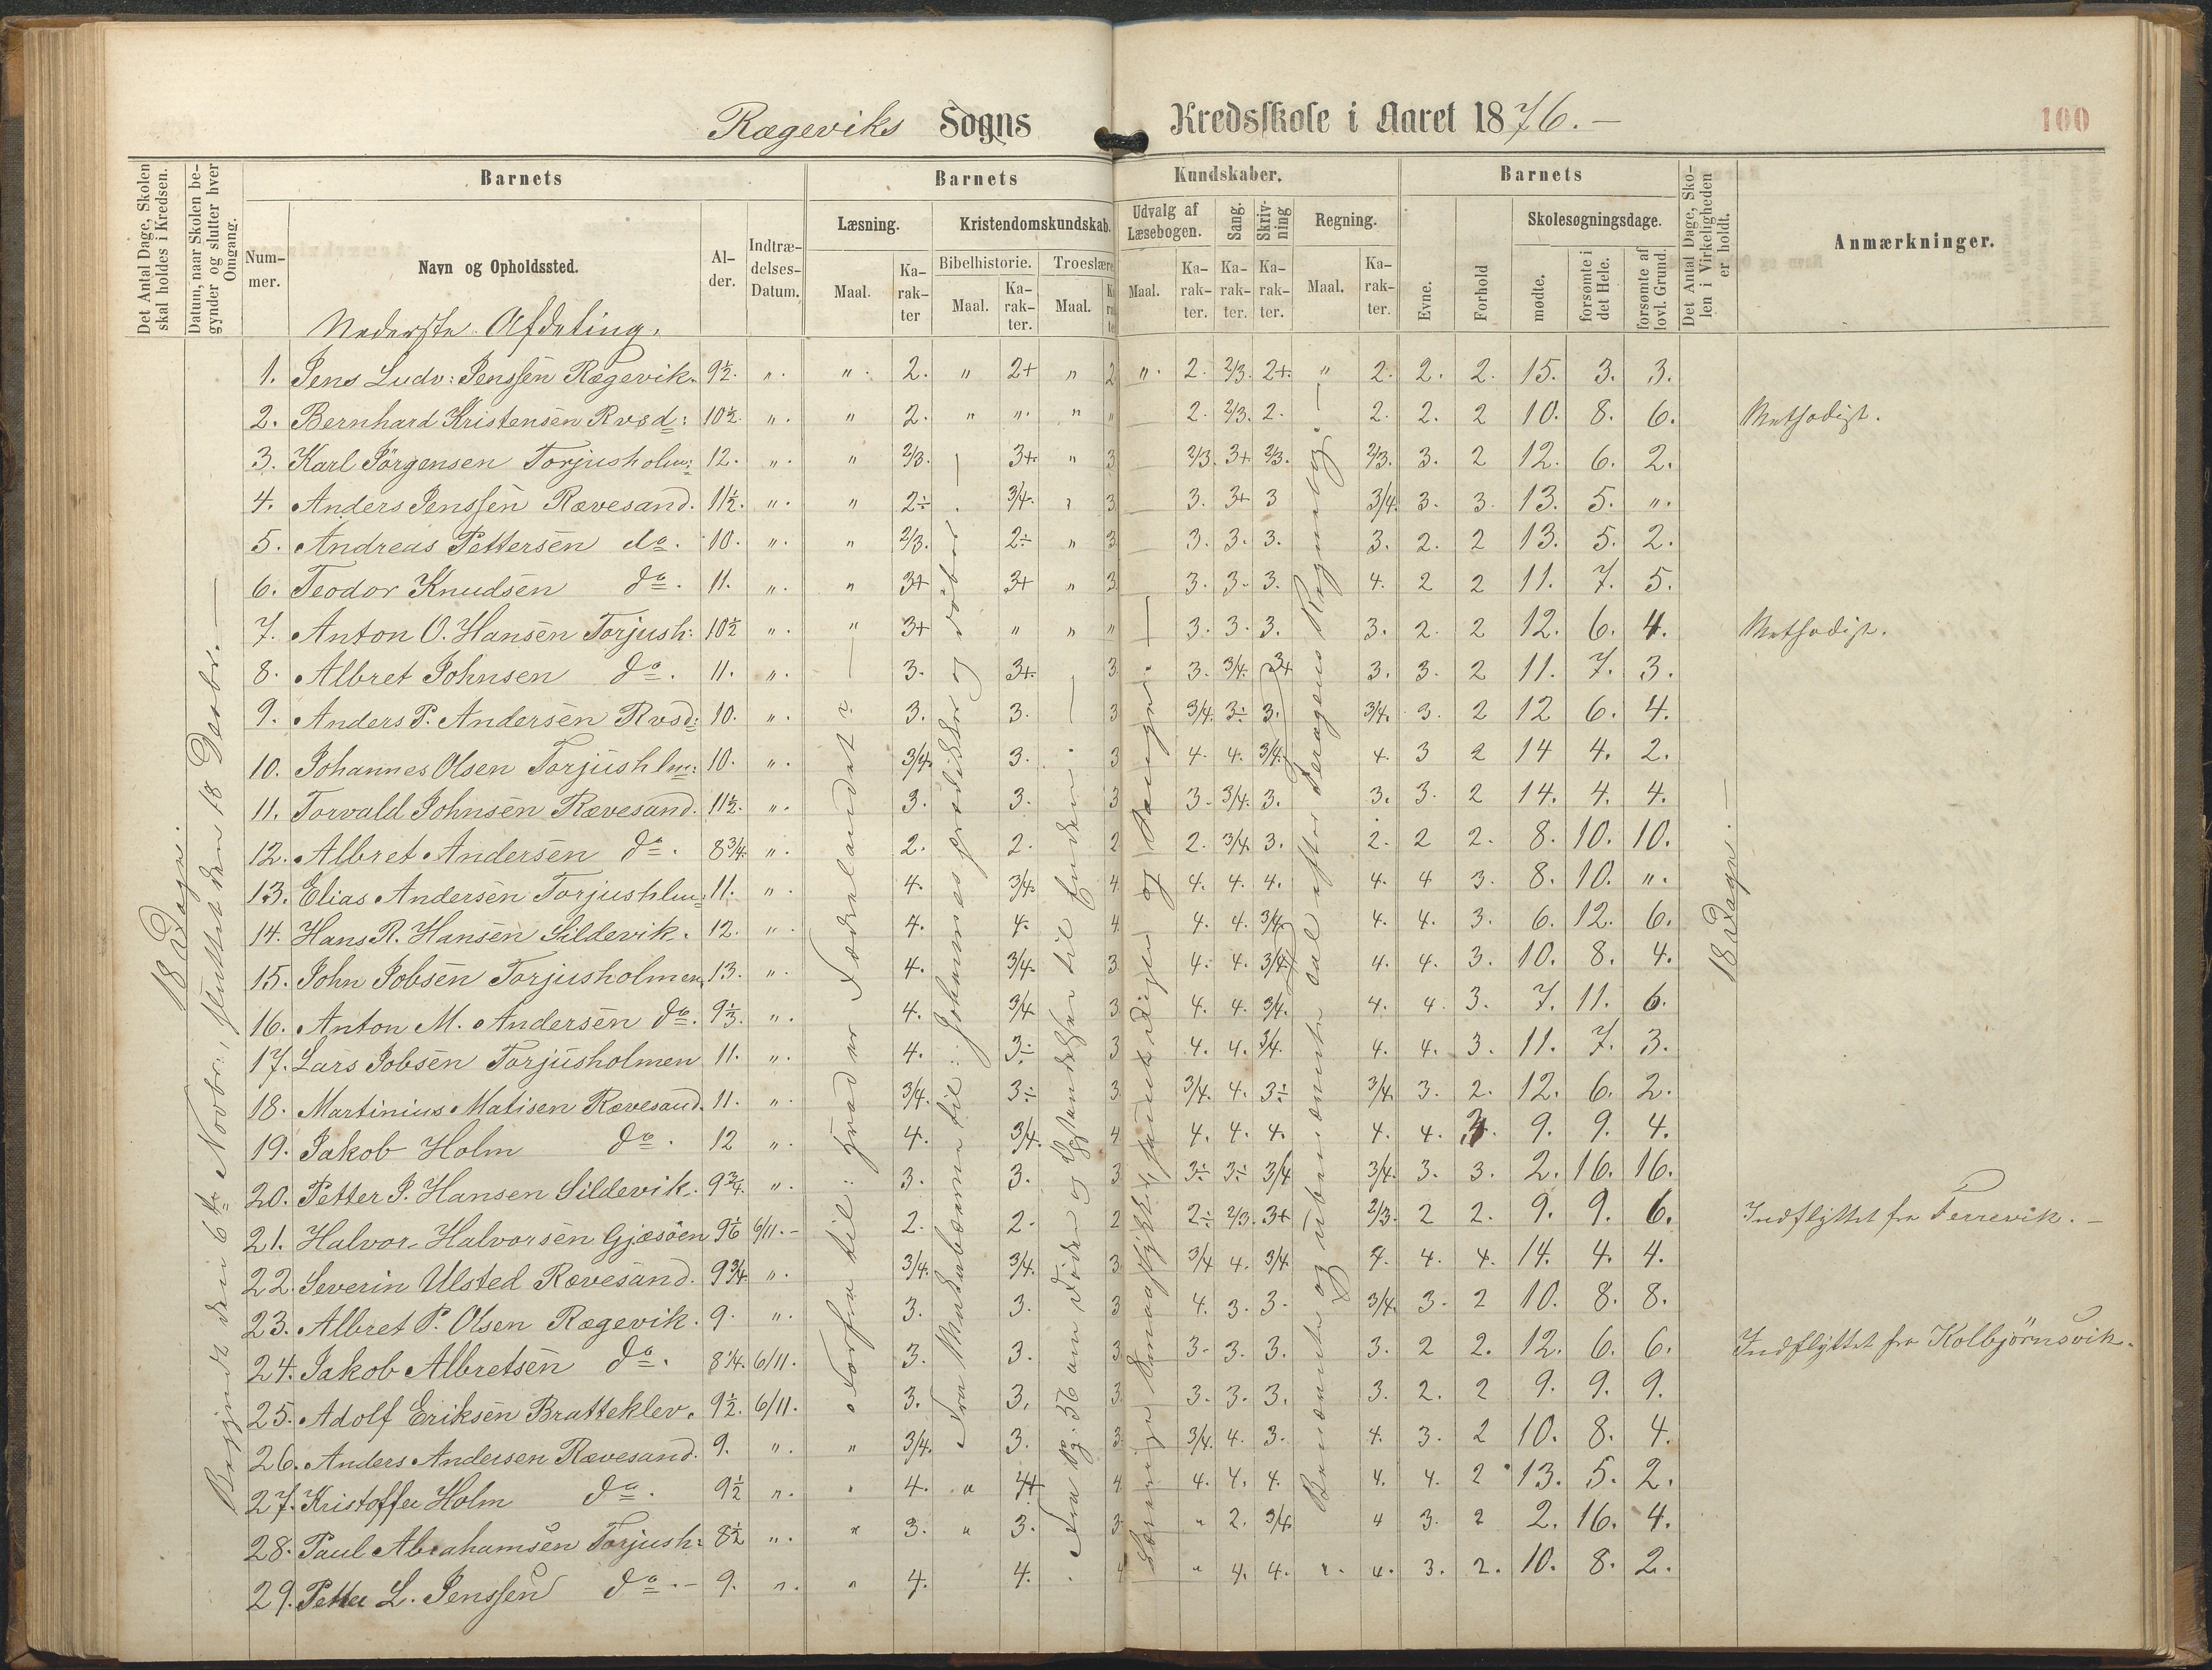 Rægeviks Sogns Kredsskole i Aaret 1876.—
100
Det Antal Dage, Skolen skal holdes i Kredsen.
Datum, naar Skolen begynder og slutter hver Omgang.
Barnets
Barnets Kundskaber.
Barnets
Det Antal Dage, Skolen i Virkeligheden er holdt.
Anmærkninger.
Nummer.
Navn og Opholdssted.
Alder.
Indtrædelses-Datum.
Læsning.
Kristendomskundskab.
Udvalg af Læsebogen.
Sang.
Skrivning
Regning.
Evne.
Forhold
Skolesøgningsdage.
Maal.
Karakter
Bibelhistorie.
Troeslære
Maal.
Karakter.
Maal.
Maal.
Karakter.
Karakter.
Karakter.
Maal.
Karakter.
mødte.
forsømte i det Hele.
forsømte af lovl. Grund.
Nederste Afdeling.
1. Jens Ludv: Jenssen Rægevik. 9½. „. „. 2. „ 2+ „ 2 „. 2. 2/3. 2+. „ 2. 2. 2. 15. 3. 3.
2. Bernhard Kristensen Rvsd: 10½. „. „ 2. „ „. „ „ 2. 2/3. 2. 2. 2. 2 10. 8. 6. Methodist.
3. Karl Jörgensen Torjusholm: 12. „. „ 2/3. 3+ „ 3 2/3. 3+ 2/3. 2/3. 3. 2 12. 6. 2.
4. Anders Jenssen Rævesand. 11½. „. „ 2÷ 3/4. 3 3. 3+ 3 3/4. 3. 3. 13. 5. „.
5. Andreas Pettersen do. 10. „. „ 2/3. 2÷ „ 3 3. 3. 3. 3. 2. 2 13. 5. 2.
6. Teodor Knudsen do. 11. „. „ 3+ 3+ „ 3 3. 3. 3. 4. 2 2 11. 7. 5.
7. Anton O. Hansen Torjush: 10½ „. „ 3+ „ „ „ 3. 3. 3. 3. 2. 2 12. 6. 4. Methodist.
8. Albret Johnsen do. 11. „. 3. 3+. 3 3. 3/4. 3+ 3. 3. 2 11. 7. 3.
9. Anders P. Andersen Rvsd: 10. „. 3. 3. 3 3/4. 3÷ 3. 3/4. 3. 2 12 6. 4.
10. Johannes Olsen Torjushlm: 10. „. 3/4. 3. 3 4. 4. 3/4. 4. 3 2 14 4. 2.
11. Torvald Johnsen Rævesand. 11½. „. 3. 3. 3 3. 3/4. 3. 3. 3. 2 14. 4. 4.
12. Albret Andersen do. 8¾. „. 2. 2. 2 2. 3/4. 3. 2. 2 2. 8. 10. 10.
13. Elias Andersen Torjushlm: 11. „. 4. 3/4. 4 4. 4. 4. 4. 4 3. 8. 10. „.
14. Hans R. Hansen Sildevik. 12. „. 4. 4. 4. 4. 4. 3/4. 4. 4. 3. 6. 12. 6.
15. John Jobsen Torjusholmen. 13. „. 4. 3/4. 3 4. 4. 3/4. 4. 4. 3. 10. 8. 4.
16. Anton M. Andersen do. 9⅓. „. 4. 3/4 3 4. 4. 3/4. 4. 4. 3. 7. 11. 6.
17. Lars Jobsen Torjusholmen 11. „. 4. 3÷ 3 4. 4. 3/4. 4. 4. 3. 11. 7. 3.
18. Martinius Matisen Rævesand. 11. „. 3/4. 3÷ 3. 3/4. 4. 3÷ 3/4. 3. 2. 12. 6. 2.
19. Jakob Holm do. 12 „. 4. 3/4. 4 4. 4. 4. 4. 4. 9. 9. 4.
20. Petter J. Hansen Sildevik. 9¾. „. 3. 3. 3 3÷ 3÷ 3/4 3/4. 3. 3. 2. 16. 16.
21. Halvor Halvorsen Gjæsöen 9⅙ 6/11.- 2. 2. 2 2÷ 2/3. 3+ 2/3. 2 2. 9. 9. 6. Indflyttet fra Terrevik.—
22. Severin Ulsted Rævesand. 9¾. „. 3/4. 3/4. 3 3/4 4. 3/4. 4. 4. 4. 14. 4. 4.
23. Albret P. Olsen Rægevik. 9. „. 3. 3. 3 4. 3. 3. 3/4. 3. 2 10. 8. 8.
24. Jakob Albretsen do. 8¼. 6/11. 3. 3. 3 3. 3. 3. 3. 2 2. 12. 6. 6. Indflyttet fra Kolbjörnsvik.
25. Adolf Eriksen Bratteklev. 9½. 6/11. 3. 3. 3. 3. 3. 3. 3. 2. 2 9. 9. 9.
26. Anders Andersen Rævesand. 9. „. „ 3/4. 3. 3. 3/4. 4. 3. 4. 3. 2 10. 8. 4.
27. Kristoffer Holm do. 9½ „. 4. „ 4+ 4 4. 4. 4. 4. 4. 2 13. 5. 2.
28. Paul Abrahamsen Torjush: 8½ „. „ 3. „ 3. 3. „ 2. 3/4. 4 3. 2 2. 16. 4.
29. Petter L. Jenssen do.- 9. „. „ 4. 4. 4 „ 4. 4. „. 4. 3. 2. 10. 8. 2.
18 Dage.
Begyndt den 6te Novbr., sluttet den 18 Decbr.—
Forfra til: hvad er Fædrelandet?—
Fra Makabæerne til: Johannes prædikker og döber
Fra Pg: 56 om Döden og Opstandelsen til Enden.
18 Dage.—